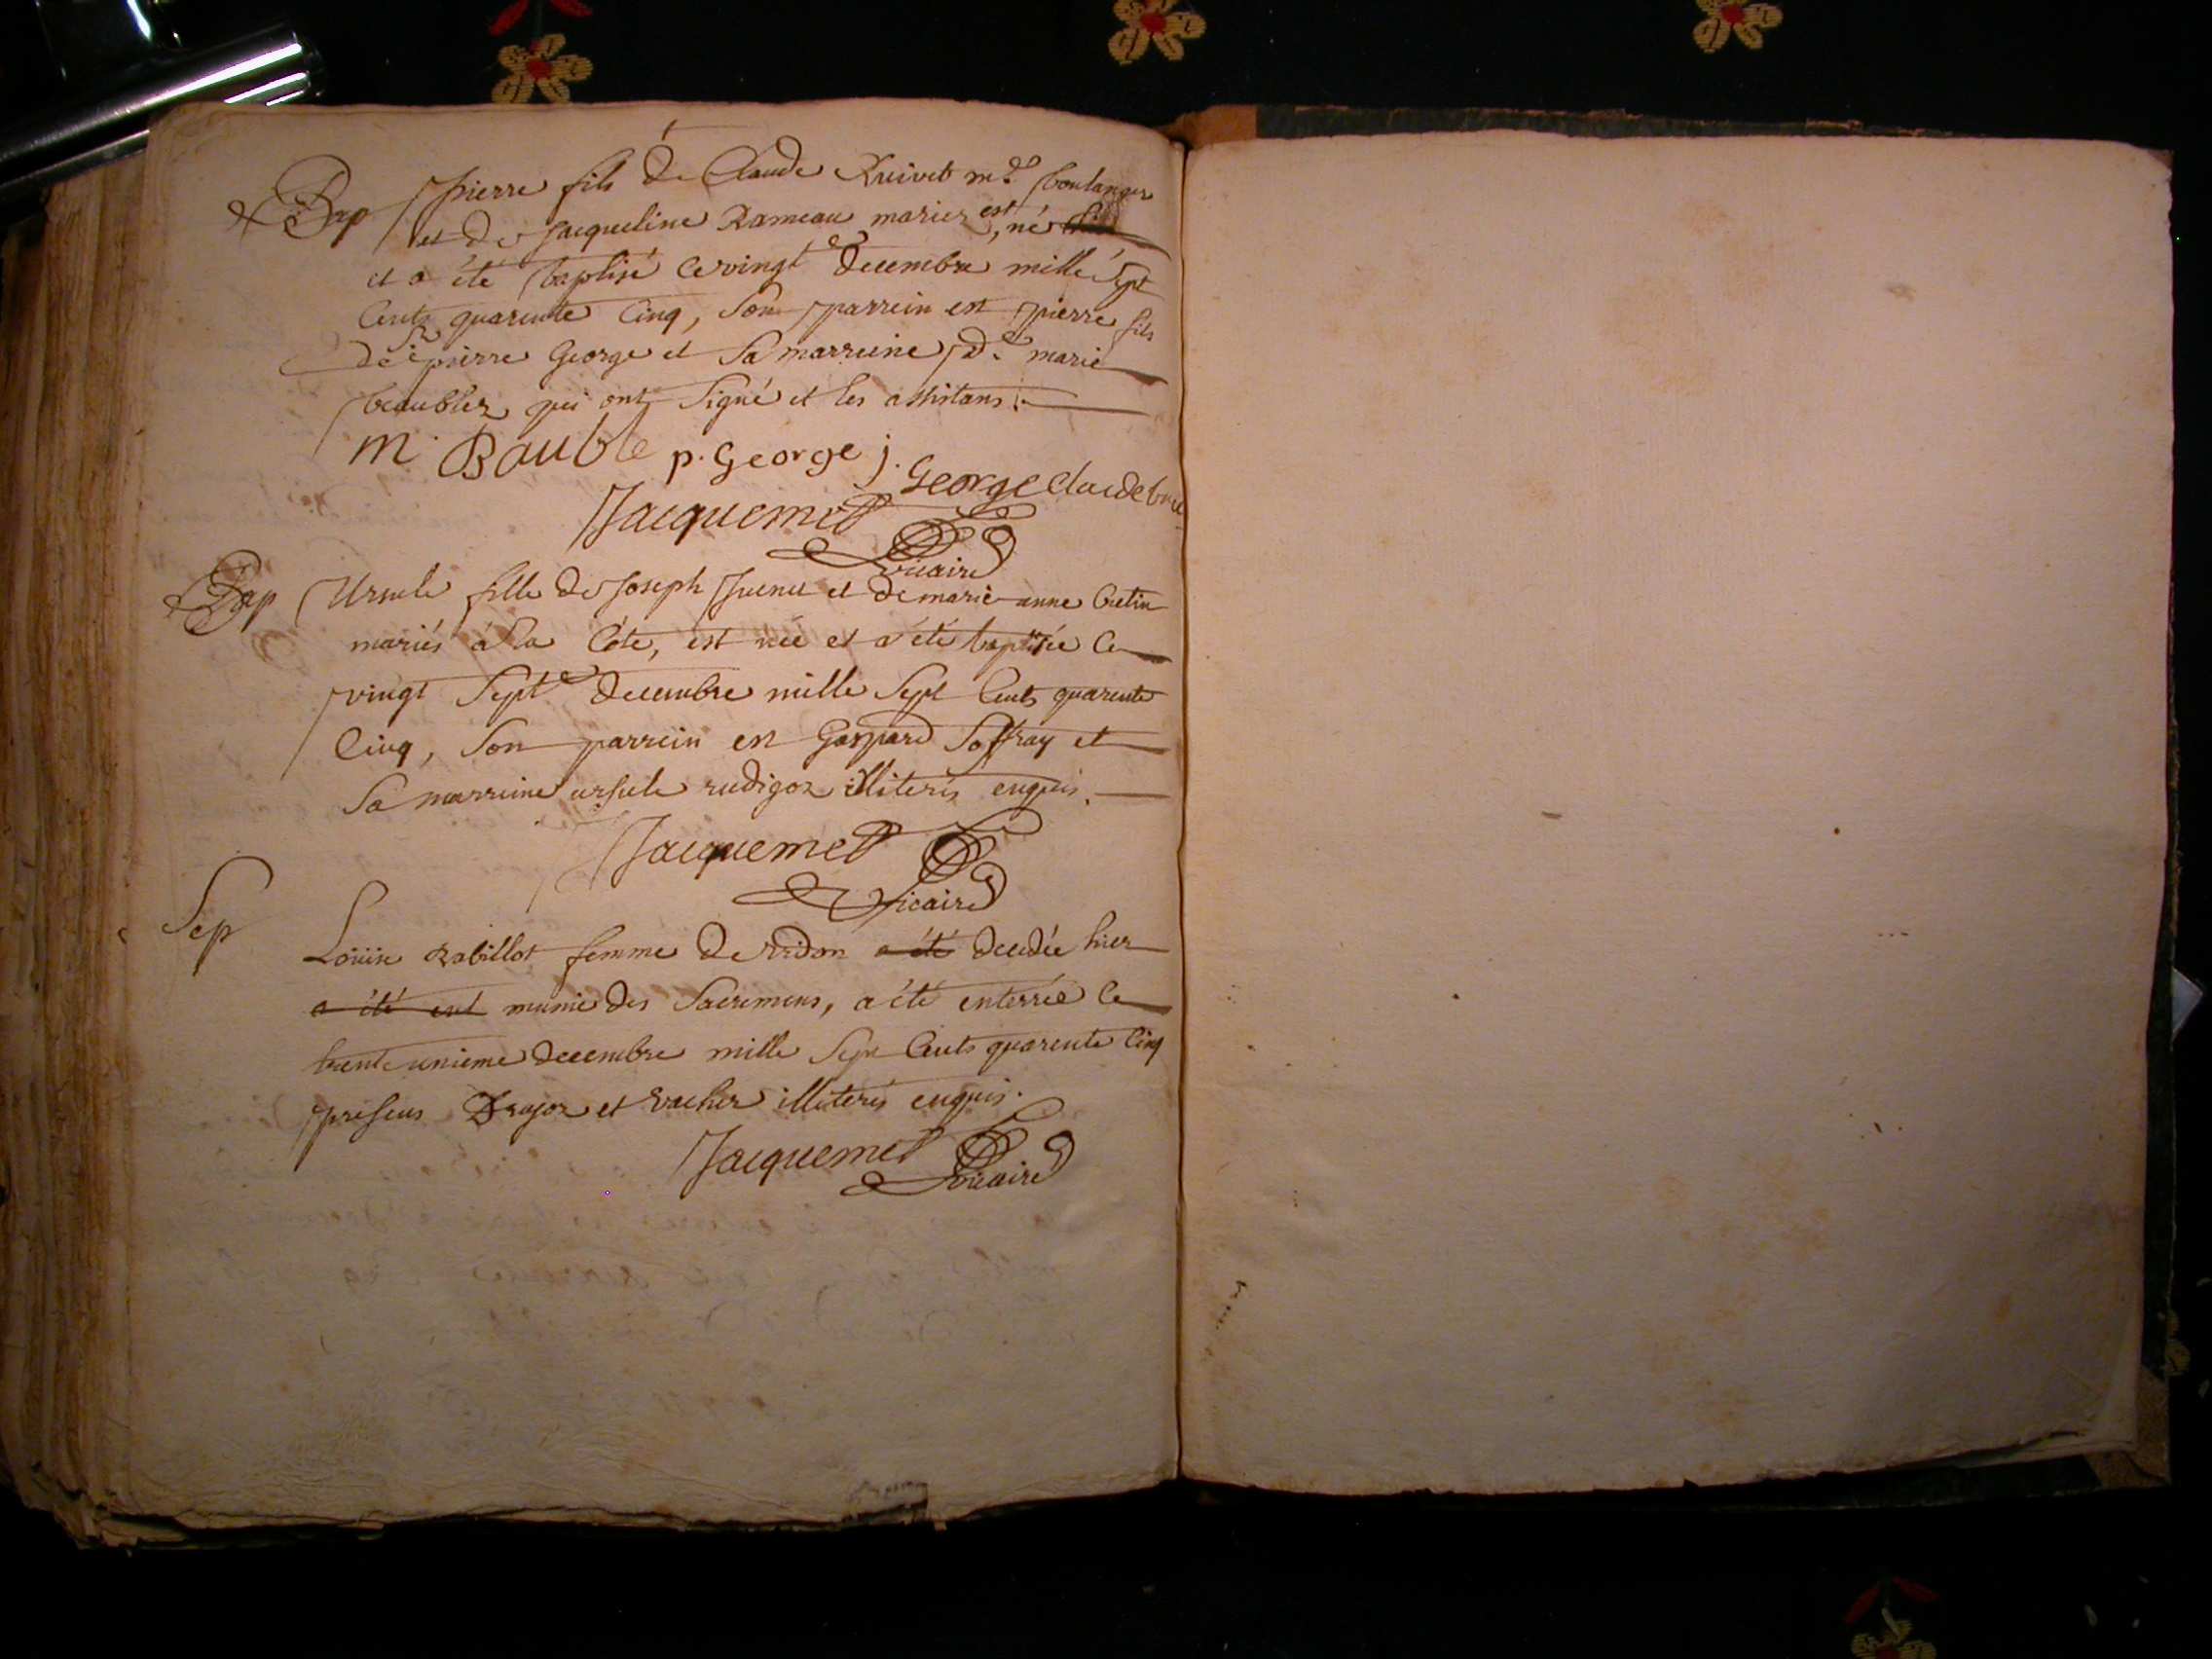 Bap pierre fils de Claude m.d boulanger
et de jacqueline Rameau mariez, est né
et a été baptisé ce vingt.e decembre mille Sept
Cents quarente Cinq, Son parrein est pierre fils
de S.r pierre George et Sa marreine d.e marie
beaublez qui ont Signé et les assistans.
m. Bauble p. George j. George
Jacquemet
vicaire
Bap Ursule fille de Joseph et de marie anne Cretin
mariés à la Côte, est née et a été baptisée le
vingt Sept.e decembre mille Sept Cents quarente
Cinq, Son parrein est Gaspard Joffray et
Sa marreine ursule rudigoz illiterés enquis.
Jacquemet
Vicaire
Sep Louise Rabillot femme de a été decedée hier
a été munie des Sacremens, a été enterrée le
trente unieme decembre mille Sept Cents quarente Cinq
presens et vacher illiterés enquis.
Jacquemet
vicaire